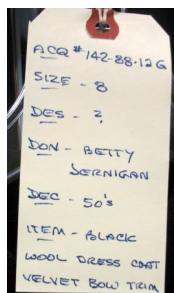 ACQ # 142-88-12G
SIZE - 8
DES - ?
DON - BETTY
JERNIGAN
DEC - 50's
ITEM - BLACK
WOOL DRESS COAT
VELVET BOW TRIM